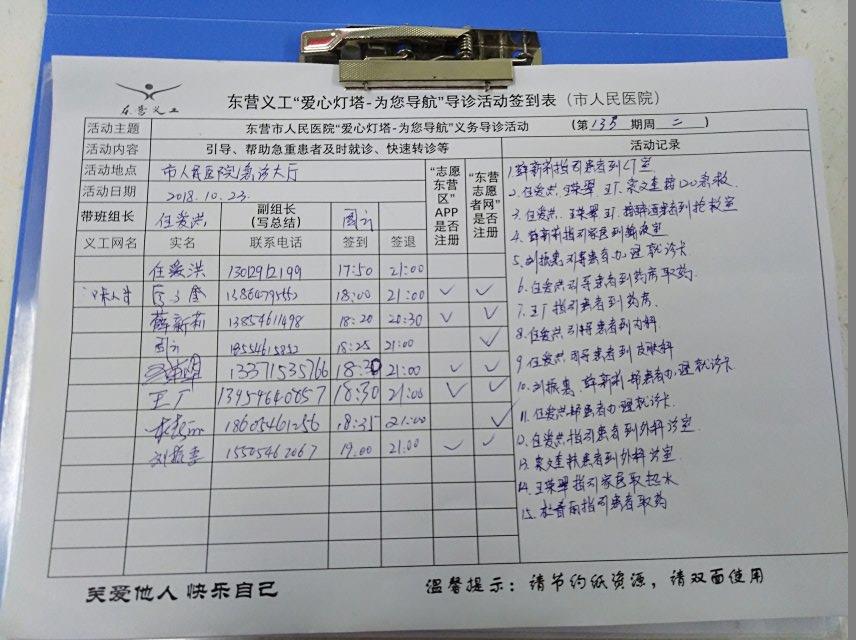 东营义工
东营义工“爱心灯塔-为您导航”导诊活动签到表（市人民医院）
活动主题 东营市人民医院“爱心灯塔-为您导航”义务导诊活动 （第135期周二）
活动内容 引导、帮助急重患者及时就诊、快速转诊等 活动记录
活动地点 市人民医院急诊大厅
活动日期 2018.10.23.
“志愿东营区”APP是否注册 “东营志愿者网”是否注册
带班组长 任爱洪 副组长（写总结）
义工网名 实名 联系电话 签到 签退
任爱洪 17:50 21:00
18:00 21:00 ✓ ✓
薛新莉 13854611498 18:20 20:30 ✓ ✓
18:25 21:00 ✓
13371535766 18:30 21:00 ✓ ✓
王厂 18:30 21:00 ✓ ✓
18605461256 18:35 21:00 ✓
刘振惠 15505462067 19:00 21:00 ✓ ✓
1.薛新莉指引患者到CT室
2.任爱洪.王荣翠.王厂.接120急救.
3.任爱洪.王荣翠.王厂.患者到抢救室
4.薛新莉指引家医到输液室
5.刘振惠引导患者办理就诊卡
6.任爱洪引导患者到药房取药.
7.王厂指引患者到药房.
8.任爱洪引导患者到内科.
9.任爱洪引导患者到皮肤科
10.刘振惠.薛新莉帮患者办理就诊卡.
11.任爱洪帮患者办理就诊卡.
12.任爱洪指引患者到外科诊室.
13.患者到外科诊室
14.王荣翠指引家医取热水
15.指引患者取药
关爱他人 快乐自己
温馨提示：请节约纸资源，请双面使用